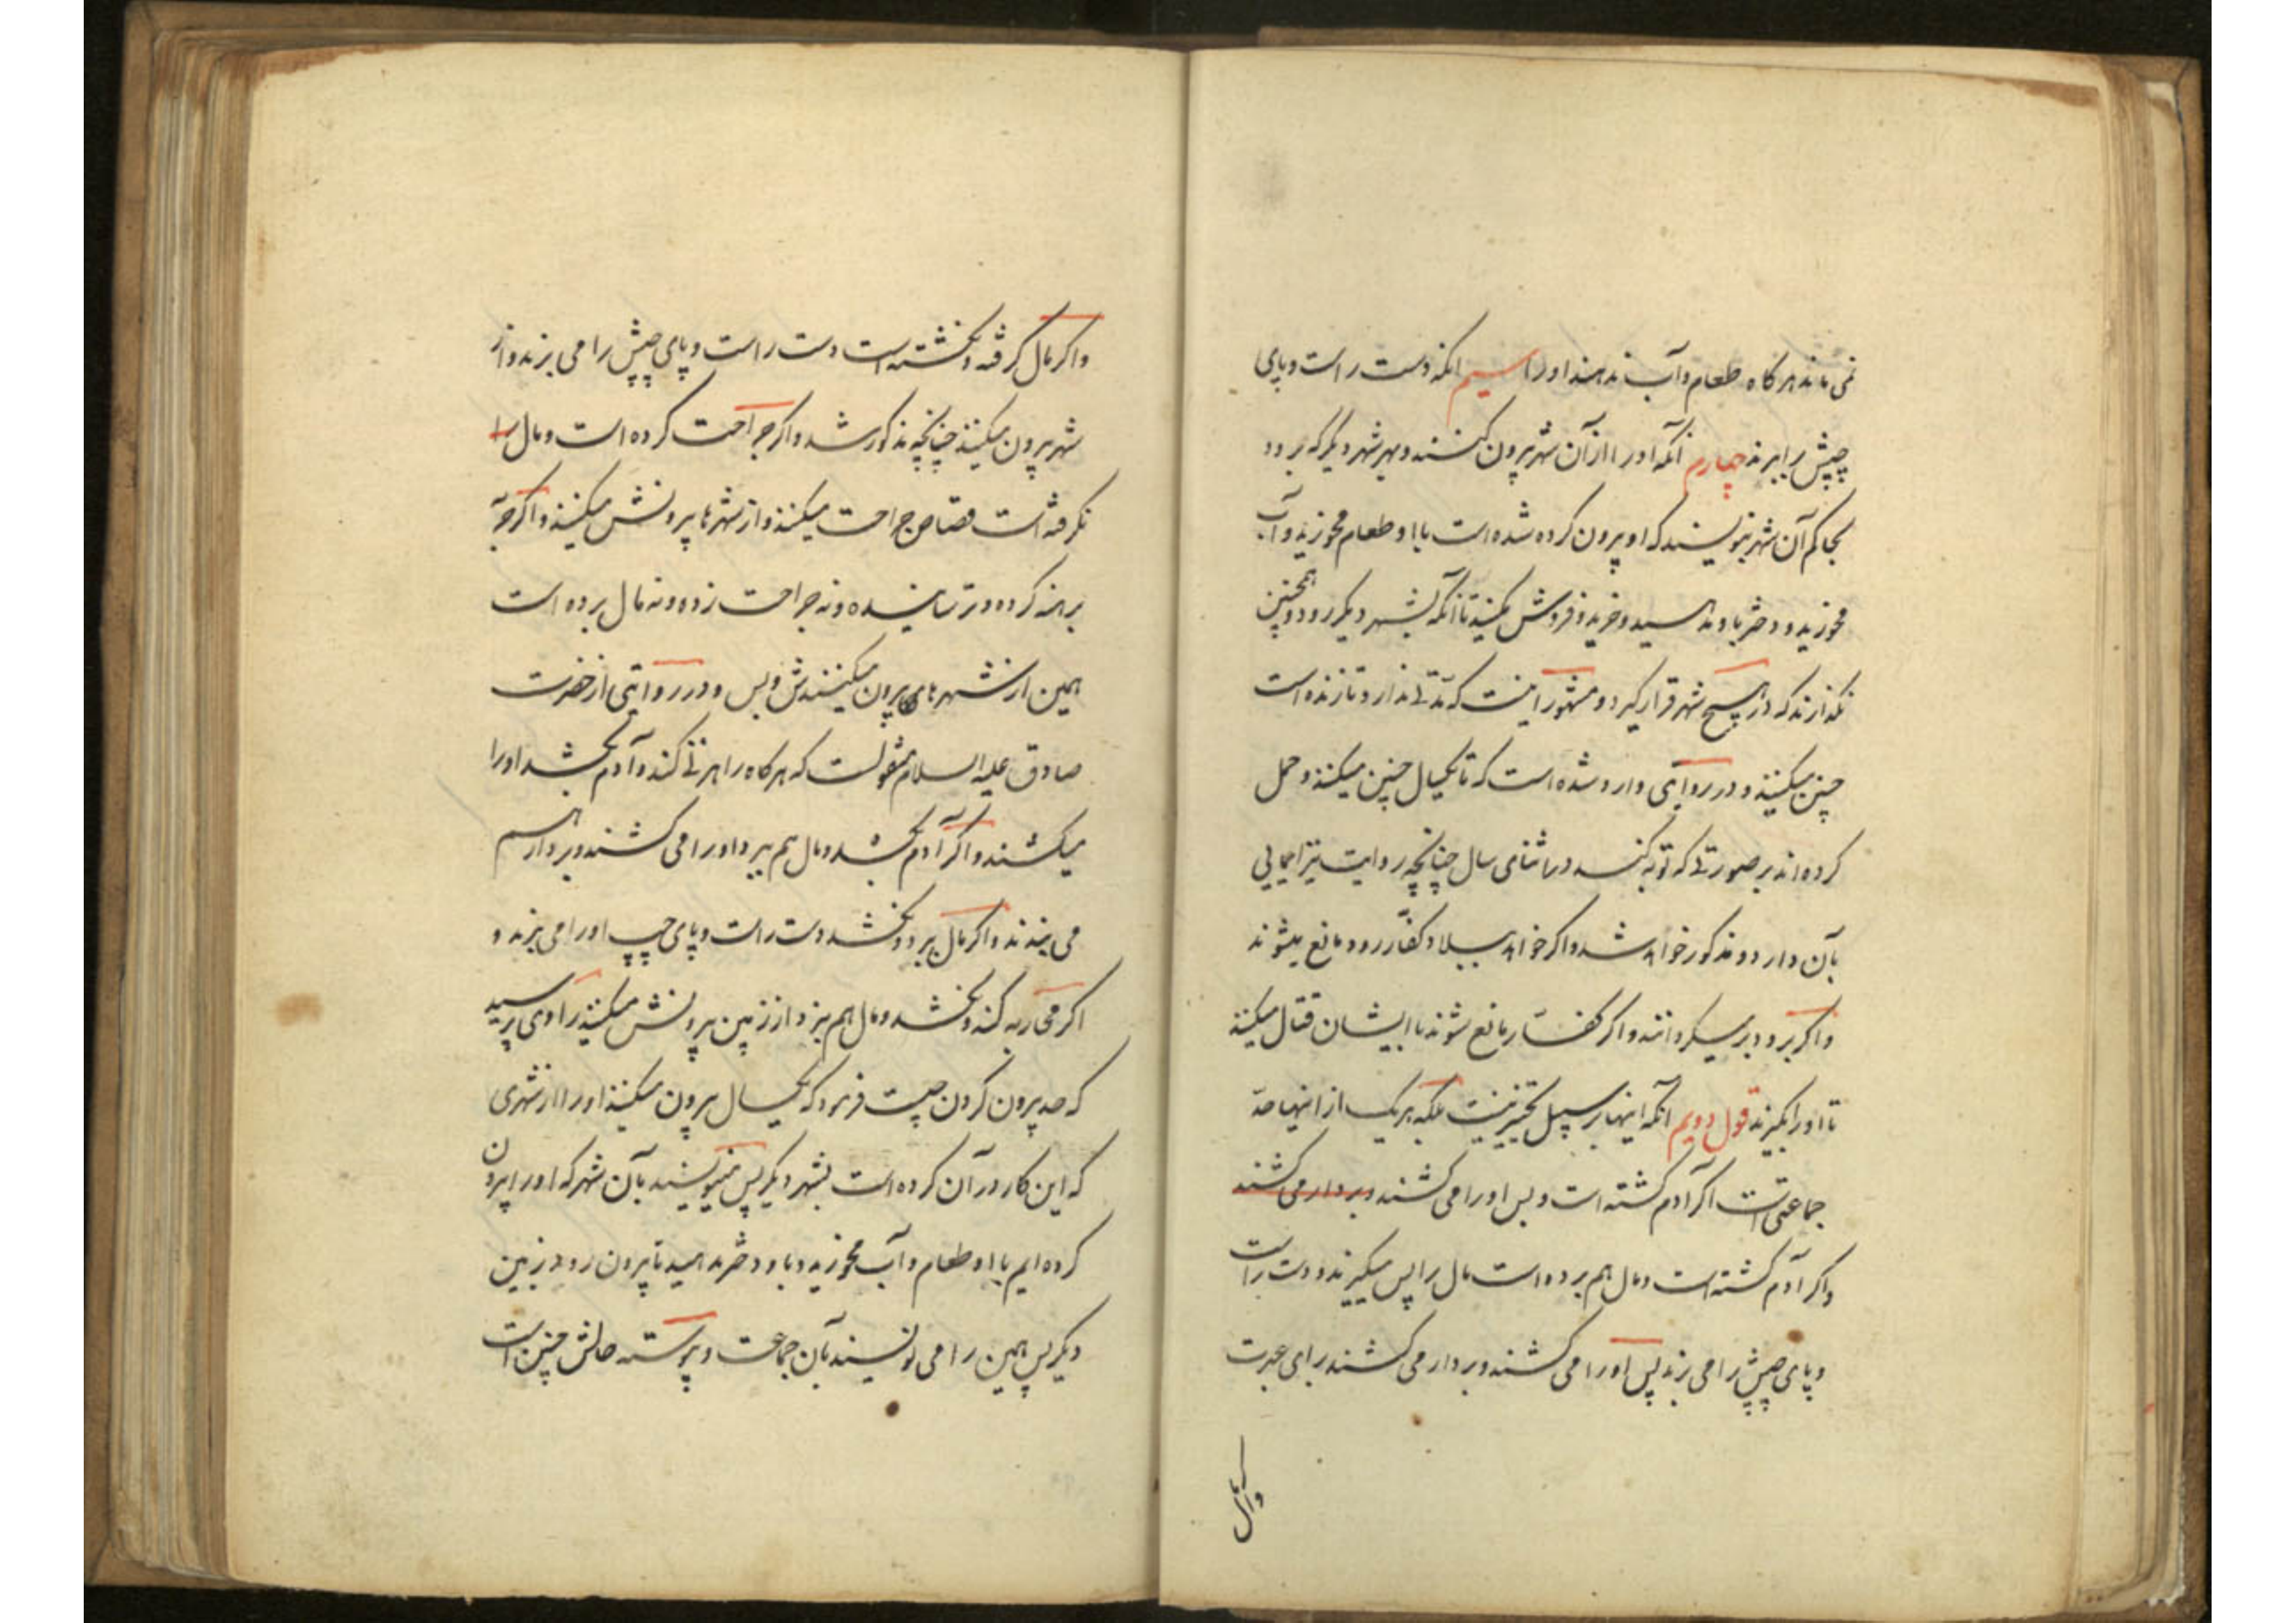 نمی ماند هر کاه طعام و آب ندهند او را سیم انکه دست راست و پای
چپش را ببرند چهارم انکه او را از آن شهر بیرون کنند و بهر شهر دیگر که برود
بحاکم آن شهر بنویسند که او بیرون کرده شده است با او طعام مخورید و آب
مخورید و دختر باو ندهید و خرید و فروش مکنید تا آنکه بشهر دیگر رود و همچنین
نکذارند که در هیچ شهر قرار کیرد و مشهور اینست که مدتی ندارد تا زنده است
چنین میکنند و در روایتی وارد شده است که تا یکسال چنین میکنند و حمل
کرده اند بر صورتی که توبه کند در اثنای سال چنانچه روایت نیز ایمایی
بآن دارد و مذکور خواهد شد و اکر خواهد ببلاد کفار رود مانع میشوند
و اکر برود بر میکردانند و اکر کفار مانع شوند با ایشان قتال میکنند
تا او را بکیرند قول دویم انکه اینها بر سبیل تخییر نیست بلکه هر یک از اینها حد
جماعتی است اکر آدم کشته است و بس او را می کشند و بر دار می کشند
و اکر آدم کشته است و مال هم برده است مال را پس میکیرند و دست راست
و پای چپش را می برند پس او را می کشند و بر دار می کشند برای عبرت
و اکر مال
و اکر مال کرفته و نکشته است دست راست و پای چپش را می برند و از
شهر بیرون میکنند چنانچه مذکور شد و اکر جراحت کرده است و مال را
نکرفته است قصاص جراحت میکنند و از شهرها بیرونش میکنند و اکر حربه
برهنه کرده و ترسانیده و نه جراحت زده و نه مال برده است
همین از شهرهای بیرون میکنندش و بس و در روایتی از حضرت
صادق علیه السلام منقولست که هر کاه راهزنی کند و آدم بکشد او را
میکشند و اکر آدم بکشد و مال هم ببرد او را می کشند و بر دار هم
می بندند و اکر مال ببرد و نکشد دست راست و پای چپ او را می برند و
اکر محاربه کند و نکشد و مال هم نبرد از زمین بیرونش میکنند راوی پرسید
که حد بیرون کردن چیست فرمود که یکسال بیرون میکنند او را از شهری
که این کار در آن کرده است بشهر دیکر پس مینویسند بآن شهر که او را بیرون
کرده ایم با او طعام و آب مخورید و باو دختر ندهید تا بیرون رود بزمین
دیکر پس همین را می نویسند بآن جماعت و پیوسته حالش چنین است